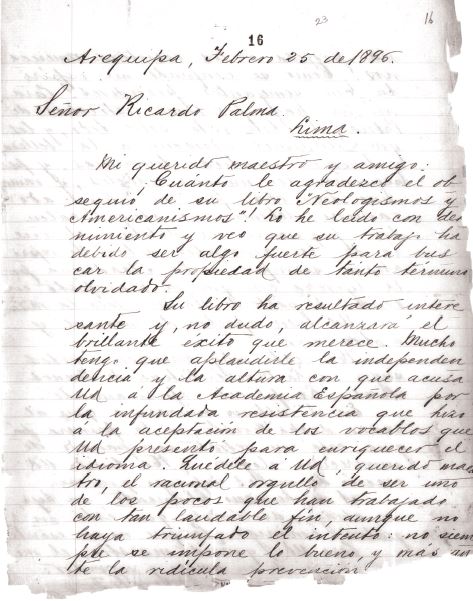 23
16
16
Arequipa, Febrero 25 de 1896.
Señor Ricardo Palma.
Lima.
Mi querido maestro y amigo:
¡Cuánto le agradezco el ob
sequio de su libro "Neologismos y
Americanismos"! Lo he leido con dete
nimiento y veo que su trabajo ha
debido ser algo fuerte para bus
car la propiedad de tanto término
olvidado.
Su libro ha resultado intere
sante y, no dudo, alcanzará el
brillante exito que merece. Mucho
tengo que aplaudirle la independen
dencia y la altura con que acusa
Ud á la Academia Española por
la infundada resistencia que hizo
á la aceptación de los vocablos que
Ud presentó para enriquecer el
idioma. Quédele á Ud, querido maes
tro, el racional orgullo de ser uno
de los pocos que han trabajado
con tan laudable fin, aunque no
haya triunfado el intento: no siem
pre se impone lo bueno, y más
te la ridícula prevención